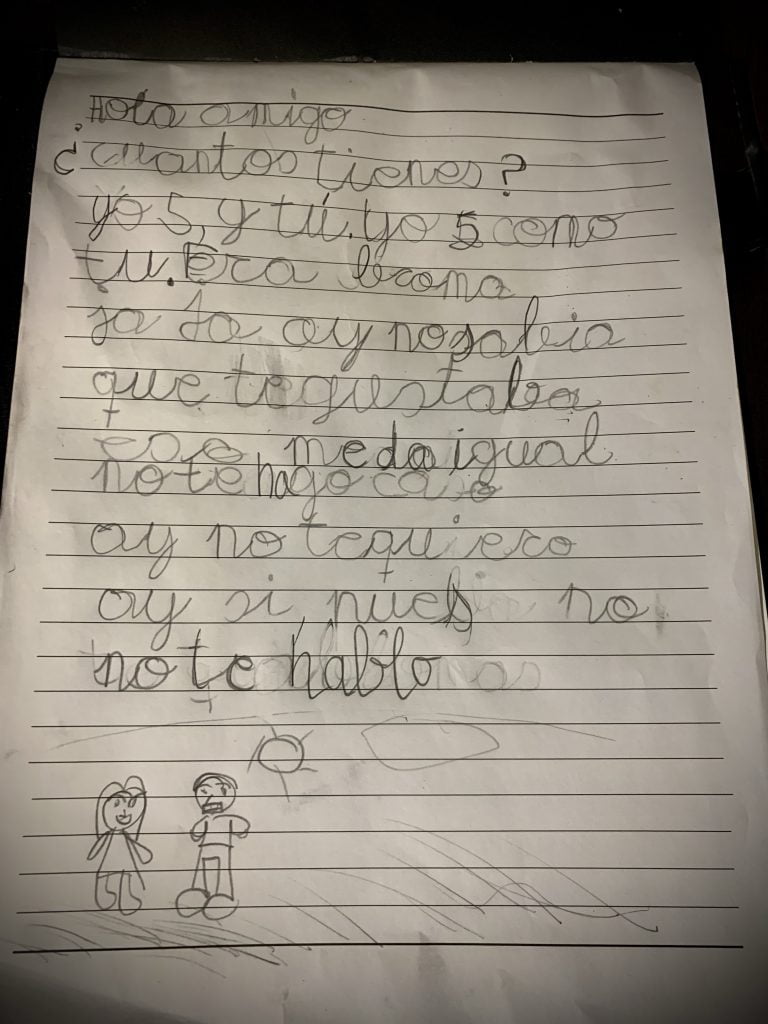 Hola amigo
¿cuantos tienes?
yo 5, y tú. yo 5 como
tu. Era broma
ja ja ay nosabia
que tegustaba
eso medaigual
no te hago caso
ay no tequiero
ay si, pues no
no te hablo